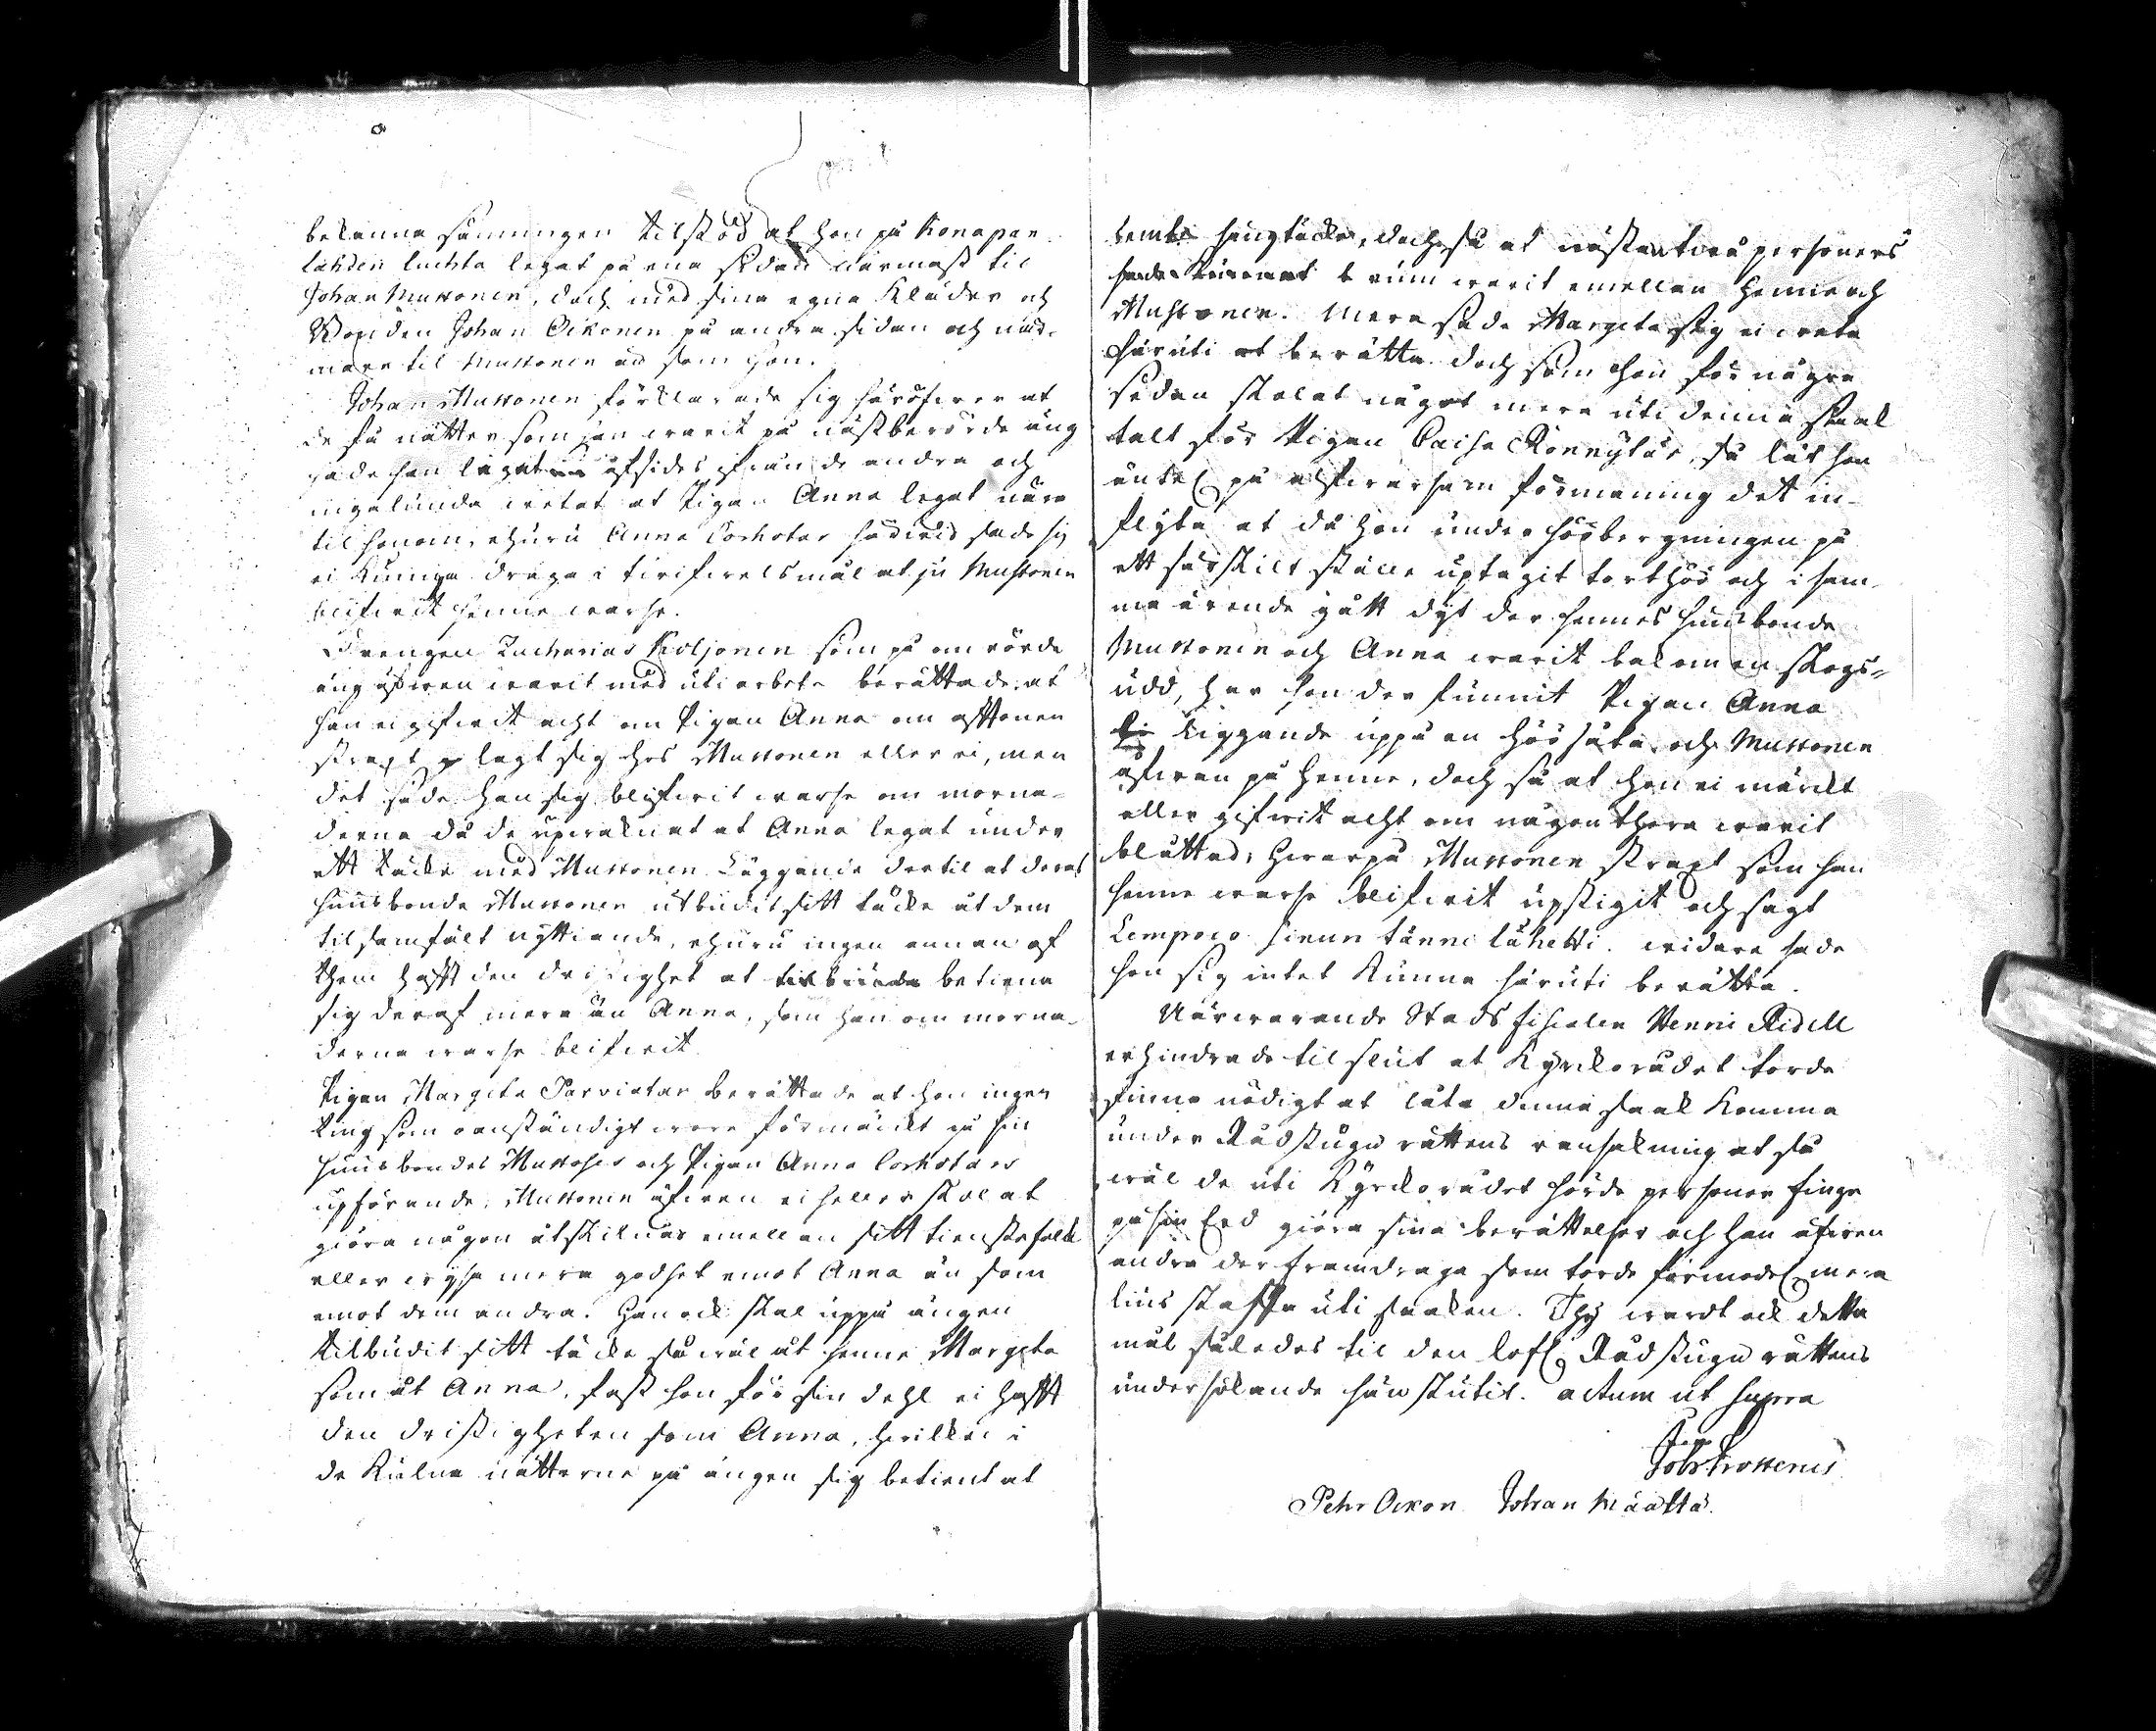 bekänna sanningen tilstod at hon på Konapan
lahden luchta legat på ena sidan närmast til
Johan Mustonen, doch med sina egna Kläder och
Bonden Johan Oikonen på andra sidan och när-
mare til Mustonen än som hon.
Johan Mustonen förklarade sig häröfwer at
de få nätter som han warit på nästberörde äng
hade han legat afsides ifrån de andra och
ingalunda wetat at Pigan Anna legat nära
til honom, ehuru Anna Corhotar härwid sade sig
ei kunna draga i twifwelsmål at ju Mustonen
blifwit henne warse.
Drengen Zacharias Koljonen som på omrörde
äng äfwen warit med uti arbete berättade, at
han ei gifwit acht om Pigan Anna om afftonen
straxt lagt sig hos Mustonen eller ei, men
det sade han sig blifwit warse om morna-
derna då de upwaknat at Anna legat under
ett täcke med Mustonen Läggande dertil at deras
huusbonde Mustonen utbudit sitt täcke åt dem
tilsamfält nyttiande, ehuru ingen annan af
them hafft den dristighet at betiena
sig deraf mera än Anna, som han om morna-
derna warse blifwit.
Pigan Margeta Parviatar berättade at hon ingen
ting som oanständigt wore förmärkt på sin
huusbondes Mustoses och Pigan Anna Corhotars
upförande, Mustonen äfwen ei heller skolat
giöra någon åtskilnad emellan sitt tienstefolk
eller wysa mera godhet emot Anna än som
emot dem andra. Han ock skal uppå ängen
tilbudit sitt täcke så wäl åt henne Margeta
som åt Anna, fast hon för sin dehl ei hafft
den dristigheten som Anna, hwilken i
de Kulna nätterna på ängen sig betient at
sängtäcke, doch så at nästan twå personers
rum warit emellan henne och
Mustonen. Mera sade Margeta sig ei weta
häruti at berätta doch som hon för några
sedan skolat något mera uti denna saak
talt för Pigan Caisa Rönnytär, så lät hon
änteligen på alfwarsam förmaning det in-
flyta at då hon under höóbergningen på
ett särskilt ställe uptagit torthöó och i sam-
ma ärende gått dyt der hennes huusbonde
Mustonen och Anna warit bakom en skogs-
udd, har hon der funnit Pigan Anna
liggande uppå en höósåta, och Mustonen
ofwan på henne, doch så at hon ei märkt
eller gifwit acht om någonthera warit
blåttad, hwarpå Mustonen straxt som han
henne warse blifwit upstigit och sagt
Lempoco sinun tänne lähetti. widare sade
hon sig intet kunna häruti berätta.
Närwarande Stadsfiscalen Henric Ridell
erhindrade til slut at Kyrckorådet torde
finna nödigt at låta denna saak komma
under Rådstugu rättens ransakning at så
wäl de uti Kyrckorådet hörde personer finge
på sin Eed giöra sina berättelser och han äfwen
andra der framdraga som torde förmodel. mera
lius skaffa uti saaken. Thy wardt ock detta
mål således til den lofl. Rådstugu rättens
undersökande hänskutit. actum ut supra
Joh: Frosterus
Pehr Oikon. Johan Määttä.